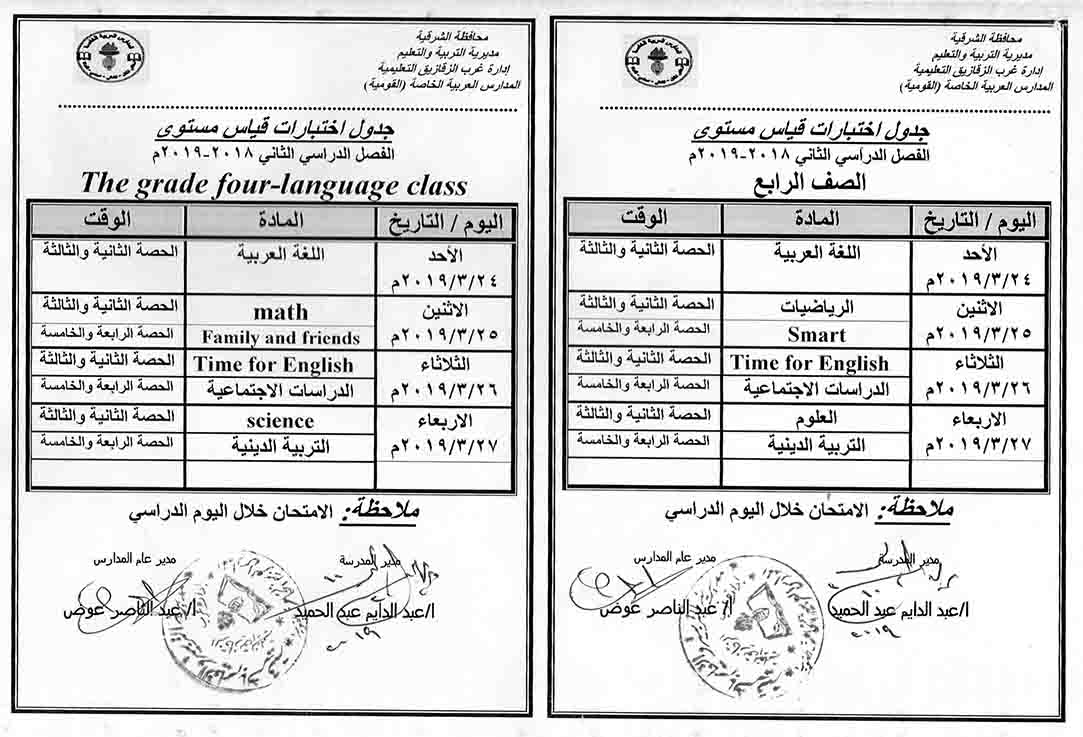 محافظة الشرقية
مديرية التربية والتعليم
إدارة غرب الزقازيق التعليمية
المدارس العربية الخاصة (القومية)
جدول اختبارات قياس مستوى
الفصل الدراسي الثاني ٢٠١٨-٢٠١٩م
الصف الرابع
اليوم / التاريخ المادة الوقت
الأحد اللغة العربية الحصة الثانية والثالثة
٢٠١٩/٣/٢٤م
الاثنين الرياضيات الحصة الثانية والثالثة
٢٠١٩/٣/٢٥م Smart الحصة الرابعة والخامسة
الثلاثاء Time for English الحصة الثانية والثالثة
٢٠١٩/٣/٢٦م الدراسات الاجتماعية الحصة الرابعة والخامسة
الاربعاء العلوم الحصة الثانية والثالثة
٢٠١٩/٣/٢٧م التربية الدينية الحصة الرابعة والخامسة
ملاحظة: الامتحان خلال اليوم الدراسي
مدير المدرسة مدير عام المدارس
ا/عبد الدايم عبد الحميد ا/ عبد الناصر عوض
٢٠١٩
محافظة الشرقية
مديرية التربية والتعليم
إدارة غرب الزقازيق التعليمية
المدارس العربية الخاصة (القومية)
جدول اختبارات قياس مستوى
الفصل الدراسي الثاني ٢٠١٨-٢٠١٩م
The grade four-language class
اليوم / التاريخ المادة الوقت
الأحد اللغة العربية الحصة الثانية والثالثة
٢٠١٩/٣/٢٤م
الاثنين math الحصة الثانية والثالثة
٢٠١٩/٣/٢٥م Family and friends الحصة الرابعة والخامسة
الثلاثاء Time for English الحصة الثانية والثالثة
٢٠١٩/٣/٢٦م الدراسات الاجتماعية الحصة الرابعة والخامسة
الاربعاء science الحصة الثانية والثالثة
٢٠١٩/٣/٢٧م التربية الدينية الحصة الرابعة والخامسة
ملاحظة: الامتحان خلال اليوم الدراسي
مدير المدرسة مدير عام المدارس
ا/عبد الدايم عبد الحميد ا/ عبد الناصر عوض
٢٠١٩